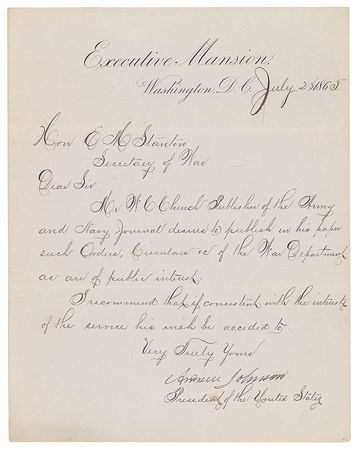 Executive Mansion,
Washington, D.C. July 28 1865
Hon E M Stanton
Secretary of War
Dear Sir
Mr W C Church Publisher of the Army
and Navy Journal desires to publish in his paper
such Orders, Circulars &c of the War Department
as are of public interest.
I recommend that if consistent with the interests
of the service his wish be acceded to
Very Truly Yours
Andrew Johnson
President of the United States